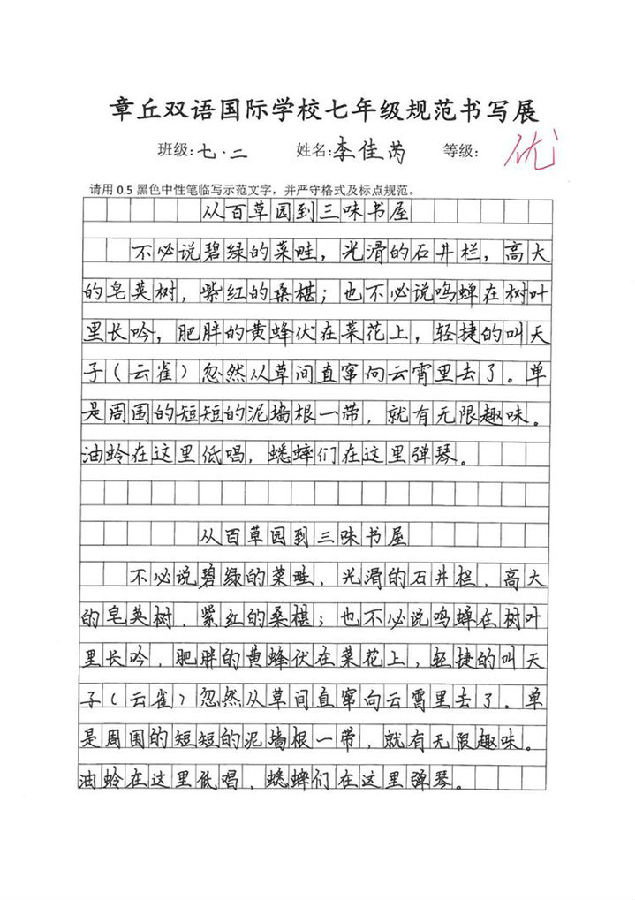 章丘双语国际学校七年级规范书写展
班级:七.二 姓名:李佳芮 等级: 优
请用05黑色中性笔临写示范文字，并严守格式及标点规范。
从百草园到三味书屋
不必说碧绿的菜畦，光滑的石井栏，高大
的皂荚树，紫红的桑椹；也不必说鸣蝉在树叶
里长吟，肥胖的黄蜂伏在菜花上，轻捷的叫天
子（云雀）忽然从草间直窜向云霄里去了。单
是周围的短短的泥墙根一带，就有无限趣味。
油蛉在这里低唱，蟋蟀们在这里弹琴。
从百草园到三味书屋
不必说碧绿的菜畦，光滑的石井栏，高大
的皂荚树，紫红的桑椹；也不必说鸣蝉在树叶
里长吟，肥胖的黄蜂伏在菜花上，轻捷的叫天
子（云雀）忽然从草间直窜向云霄里去了。单
是周围的短短的泥墙根一带，就有无限趣味。
油蛉在这里低唱，蟋蟀们在这里弹琴。